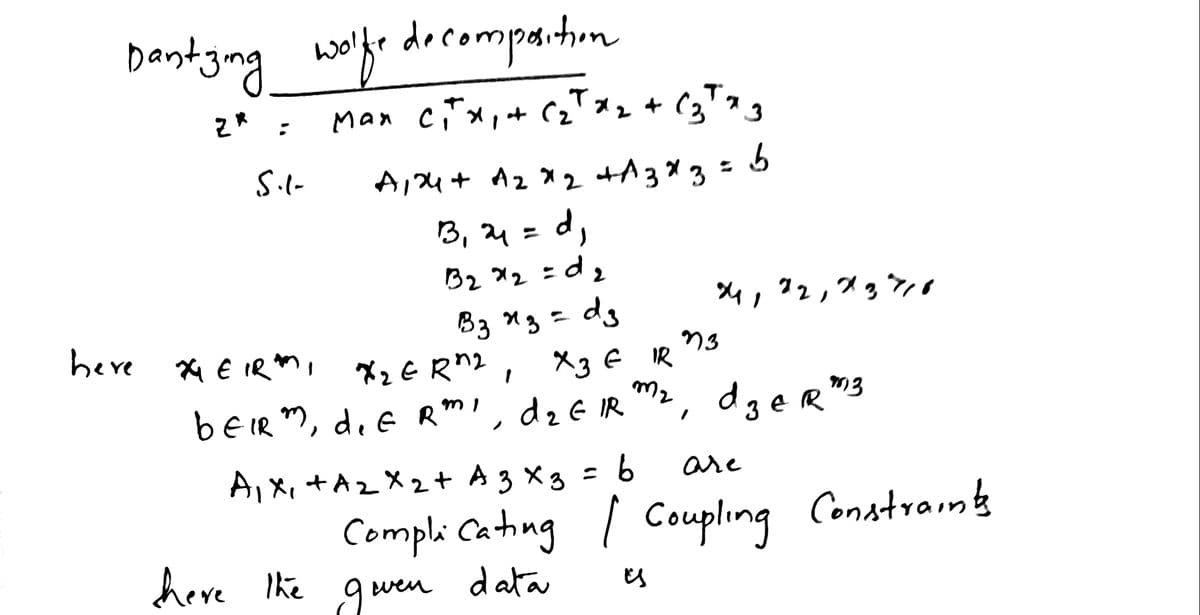 Dantzing wolfe decomposition
z* : Max c₁ᵀx₁ + c₂ᵀx₂ + c₃ᵀx₃
S.t- A₁x₁ + A₂x₂ + A₃x₃ = b
B₁x₁ = d₁
B₂x₂ = d₂
x₁, x₂, x₃ ≥ 0
B₃x₃ = d₃
here x₁ ∈ ℝⁿ¹ x₂ ∈ Rⁿ², x₃ ∈ ℝⁿ³
b ∈ ℝᵐ, d₁ ∈ Rᵐ¹, d₂ ∈ ℝᵐ², d₃ ∈ Rᵐ³
A₁x₁ + A₂x₂ + A₃x₃ = b are
Complicating / Coupling Constraints
here the given data is